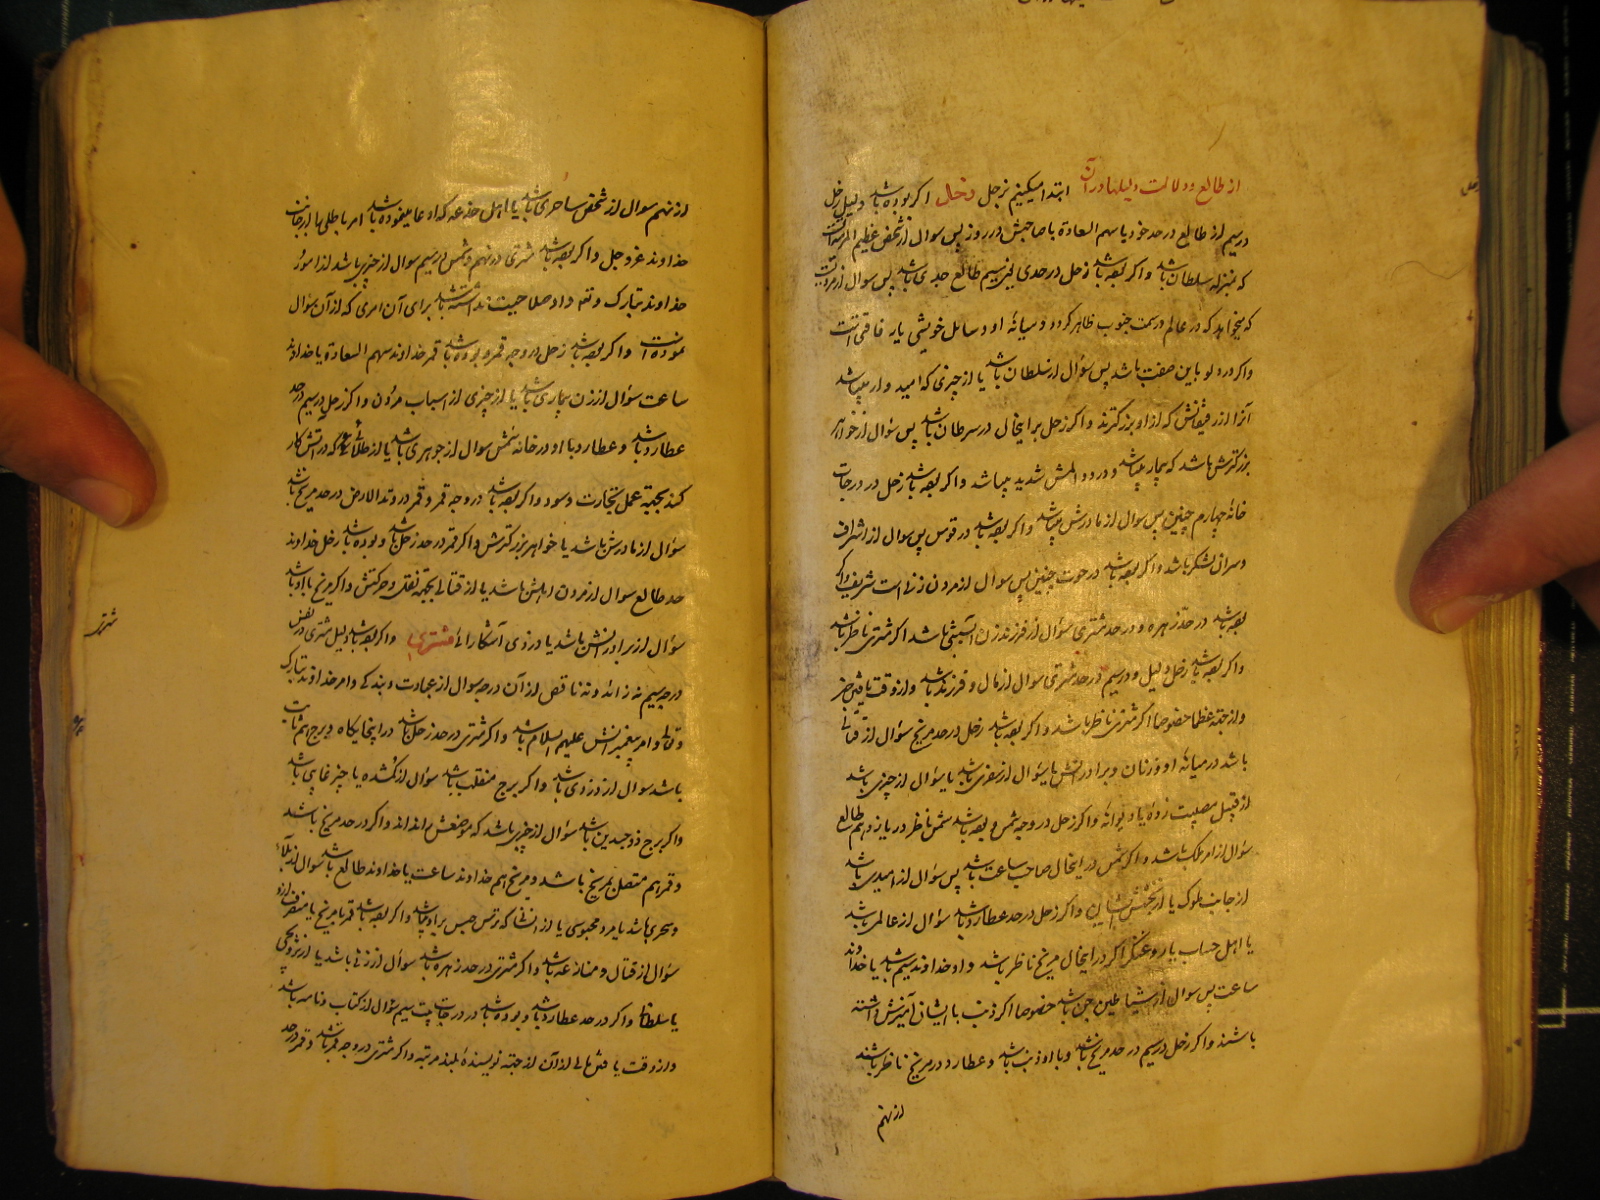 از طالع و دلالت دلیلها در آن ابتدا میکنیم بزحل زحل اگر بوده باشد دلیل زحل
در سیم از طالع در حد خود یا سهم السعادة با صاحبش در روز پس سوال از شخص عظیم المرتبه است
که بمنزله سلطان باشد و اگر بوده باشد زحل در حدی یعنی سیم طالع جدی باشد پس سوال از مردیست
که میخواهد که در عالم در سمت جنوب ظاهر کردد و میانهٔ او و سائل خویشی یا رفاقتی است
و اگر در دلو باین صفت باشد پس سؤال از سلطان باشد یا از چیزی که امید وار میباشد
آنرا از رفیقانش که از او بزرگترند و اگر زحل بر اینحال در سرطان باشد پس سؤال از خواهر
بزرکترش باشد که بیمار میباشد و درد و المش شدید میباشد و اگر بوده باشد زحل در درجات
خانه چهارم چنین پس سوال از مادرش میباشد و اگر بوده باشد در قوس پس سوال از اشراف
و سران لشکر باشد و اگر بوده باشد در حوت چنین پس سوال از مردن زنی است شریف و اگر
بوده باشد در حد زهره و در حد مشتری سؤال از فرزند زن آبستنی باشد اگر مشتری ناظر باشد
و اگر بوده باشد زحل دلیل و در سیم در حد مشتری سوال از مال و فرزند باشد و از وقت یافتن چیز
و از جثه عظما خصوصا اگر مشتری ناظر باشد و اگر بوده باشد زحل در حد مریخ سؤال از قتالی
باشد در میانهٔ او و زنان و برادرانش یا سؤال از سفری باشد یا سؤال از چیزی باشد
از قبیل مصیبت زده یا دیوانه و اگر زحل در وجه شمس بوده باشد شمس ناظر در یازدهم طالع
سؤال از امر ملک باشد و اگر شمس در اینحال صاحب ساعت باشد پس سؤال از امیدی باشد
از جانب ملوک یا از بخشش ایشان و اگر زحل در حد عطارد باشد سؤال از عالمی باشد
یا اهل حساب یا روغنگر اگر در اینحال مریخ ناظر باشد و او خداوند سیم باشد یا خداوند
ساعت پس سوال از شیاطین جن باشد خصوصا اگر ذنب با ایشان آمیزش داشته
باشند و اگر زحل در سیم در حد مریخ باشد و با او ذنب باشد و عطارد در مریخ ناظر باشند
از نهم
زحل
از نهم سوال از شخص ساحری باشد یا اهل خدعه که ادعا مینموده باشد امر باطلی را از جانب
خداوند عزوجل و اگر بوده باشد مشتری در نهم و شمس در سیم سوال از چیزی باشد از امور
خداوند تبارک و تعالی و او صلاحیت نداشته باشد برای آن امری که از آن سؤال
نموده است و اگر بوده باشد زحل در وجه قمر و بوده باشد قمر خداوند سهم السعادة یا خداوند
ساعت سؤال از زن بیماری باشد یا از چیزی از اسباب مردن و اگر زحل در سیم در حد
عطارد باشد و عطارد با او در خانه شمس سوال از جوهری باشد یا از طلائی که در آتش کار
کند بجهة عمل تجارت و سود و اگر بوده باشد در وجه قمر و قمر در وتد الارض در حد مریخ باشد
سؤال از مادرش باشد یا خواهر بزرکترش و اگر قمر در حد زحل باشد و بوده باشد زحل خداوند
حد طالع سوال از مردن اهلش باشد یا از قتالی بجهة نقلی و حرکتش و اگر مریخ با او باشد
سؤال از برادرانش باشد یا دزدی آشکارائی مشتری و اگر بوده باشد دلیل مشتری در نفس
درجه سیم نه زائد و نه ناقص از آن درجه سوال از عبادت و بندکی و امر خداوند تبارک
و تعالی و امر پیغمبرانش علیهم السلام باشد و اگر مشتری در حد زحل باشد در اینجایگاه و برج هم ثابت
باشد سوال از دزدی باشد و اگر برج منقلب باشد سؤال از کمشده یا چیز غایبی باشد
و اگر برج ذو جسدین باشد سؤال از چیزی باشد که موضعش انداند و اگر در حد مریخ باشد
و قمر هم متصل بمریخ باشد و مریخ هم خداوند ساعت یا خداوند طالع باشد سوال از بلائی
و سحری باشد یا مرد محبوسی یا از انسانی که ترس حبس بر او باشد و اگر بوده باشد قمر با مریخ یا منصرف از او
سؤال از قتال و منازعه باشد و اگر مشتری در حد زهره باشد سوال از زنی باشد یا از تزویجی
یا سلطانی و اگر در حد عطارد باشد و بوده باشد در درجات بیت سیم سؤال از کتاب و نامه باشد
و از وقت یا فتن مالی از آن از جهة نویسندهٔ بلند مرتبه و اگر مشتری در وجه قمر باشد و قمر در حد
مشتری